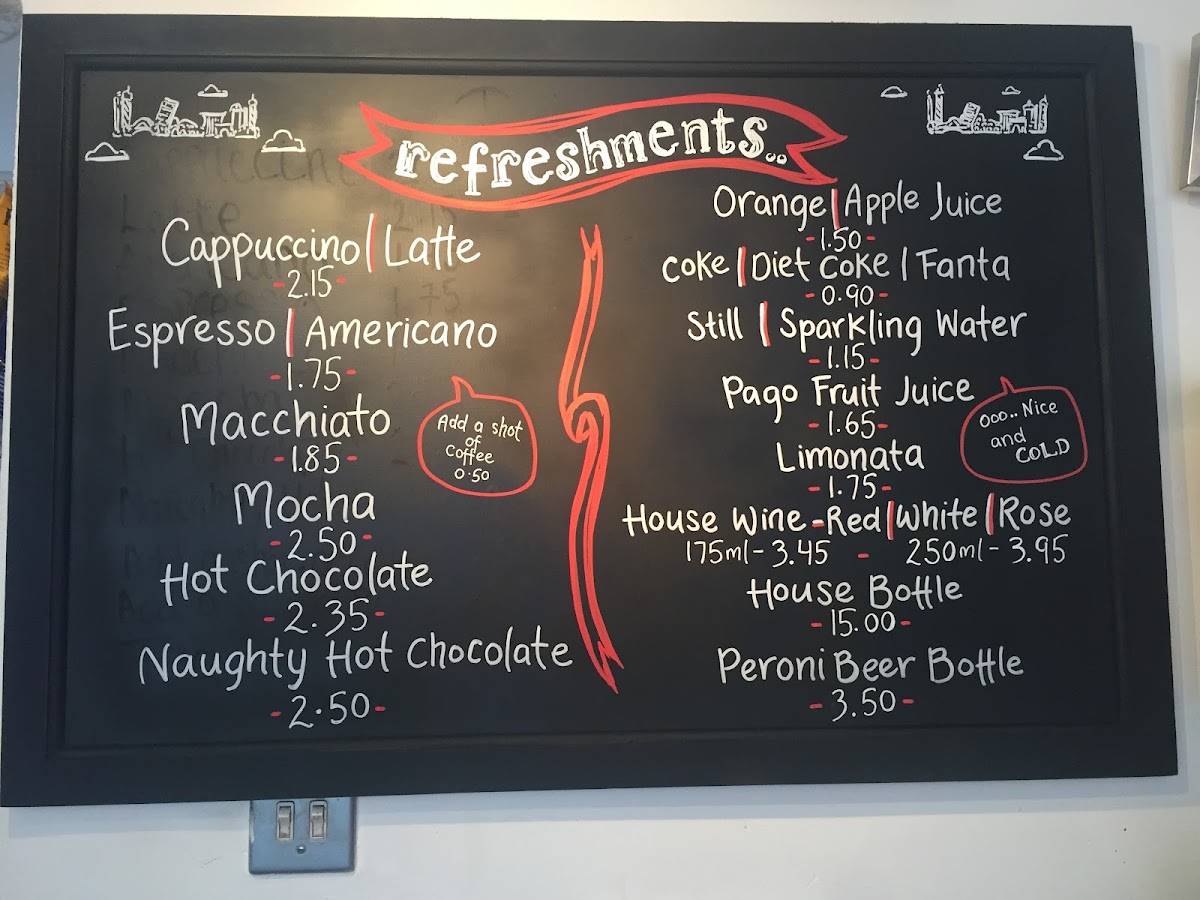 refreshments..
Cappuccino | Latte
-2.15-
Espresso | Americano
-1.75-
Macchiato
-1.85-
Add a shot
of
coffee
0.50
Mocha
-2.50-
Hot Chocolate
-2.35-
Naughty Hot Chocolate
-2.50-
Orange | Apple Juice
-1.50-
Coke | Diet Coke | Fanta
-0.90-
Still | Sparkling Water
-1.15-
Pago Fruit Juice
-1.65-
Ooo.. Nice
and
COLD
Limonata
-1.75-
House Wine - Red | White | Rose
175ml - 3.45 - 250ml - 3.95
House Bottle
-15.00-
Peroni Beer Bottle
-3.50-